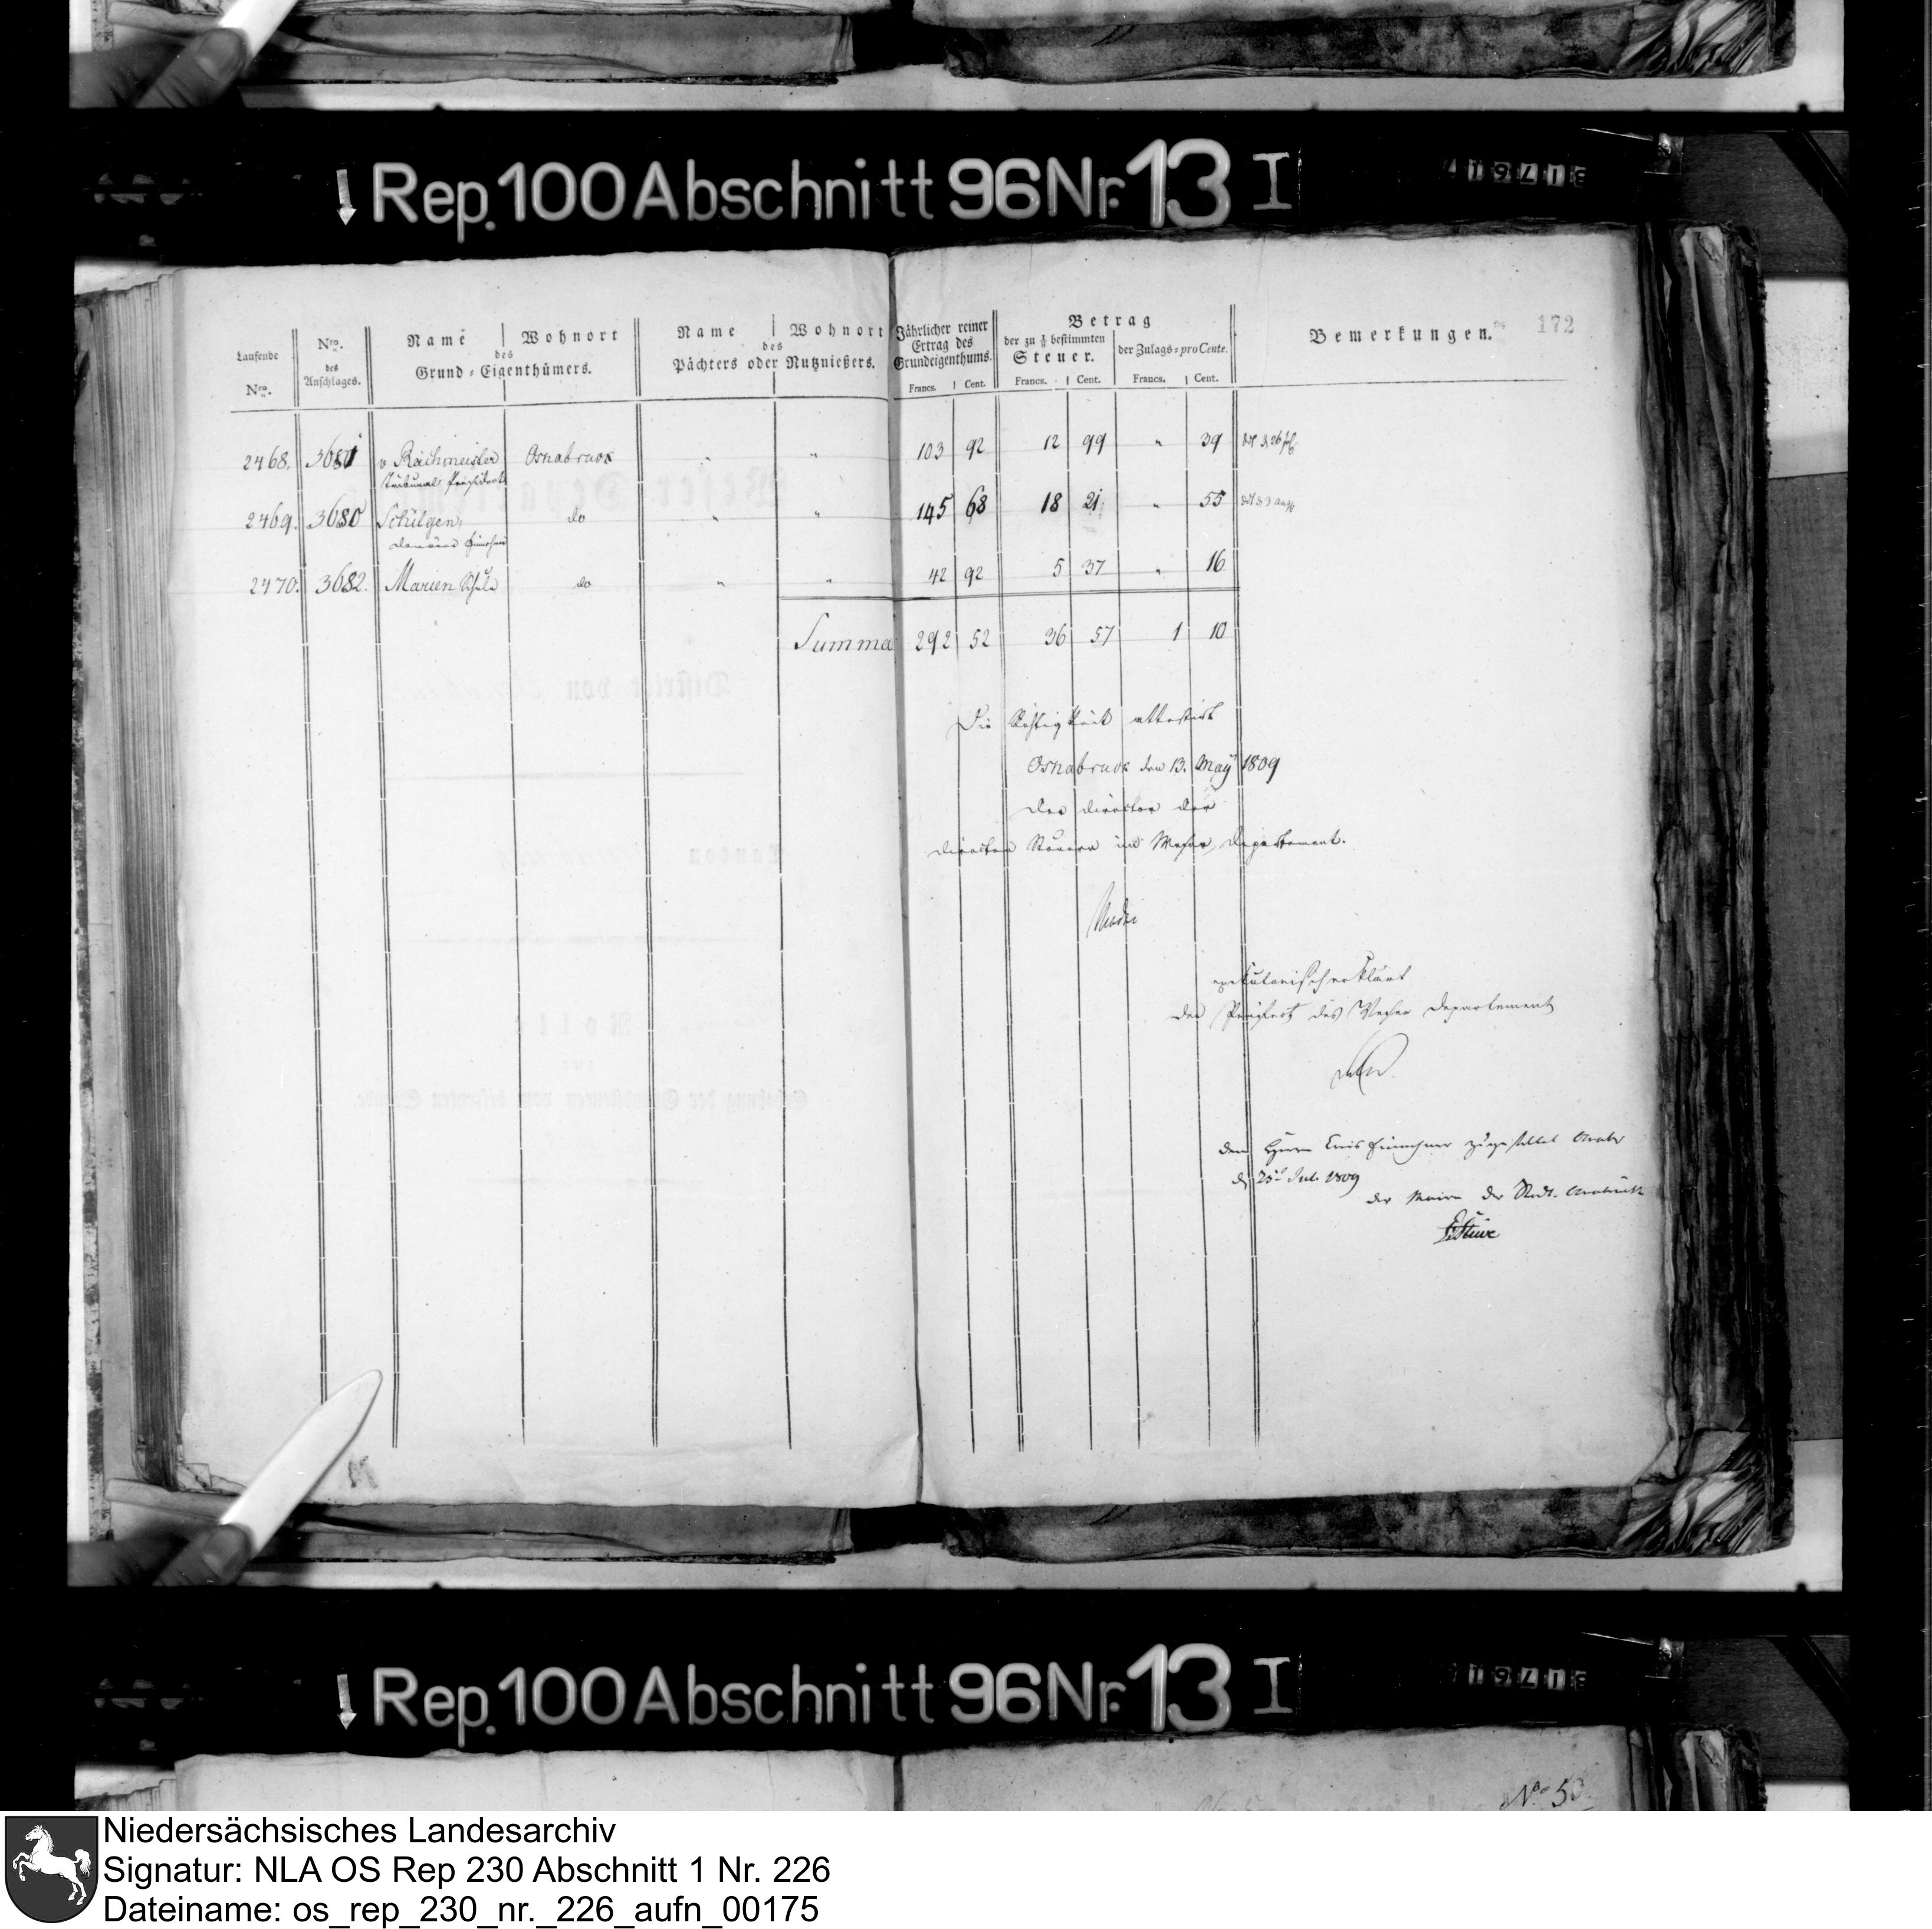 ↓ Rep. 100 Abschnitt 96 Nr. 13 I
172
Laufende Nro.
Nro. des Anschlages.
Name | Wohnort
des
Grund-Eigenthümers.
Name | Wohnort
des
Pächters oder Nutznießers.
Jährlicher reiner Ertrag des Grundeigenthums.
Francs. | Cent.
Betrag
der zu 1/8 bestimmten Steuer.
Francs. | Cent.
der Zulags-pro Cente.
Francs. | Cent.
Bemerkungen.
2468. 3681 v Reichmeister Osnabruck " " 103 92 12 99 " 39
Tribunal Praesident
2469. 3680 Schülgen, do " " 145 68 18 21 " 55
Domänen Einnehmer
2470. 3682. Marien Schule do " " 42 92 5 37 " 16
Summa 292 52 36 57 1 10
Die Richtigkeit attestirt
Osnabruck den 13. May 1809
Der Director der
directen Steuern im Weser Departement.
executorisch erklärt
Der Präfect des Weser Departement
dem Herrn Einnehmer zugestellt Osnabr
d 25 Juli 1809
der Maire der Stadt Osnabrück
Stüve
↓ Rep. 100 Abschnitt 96 Nr. 13 I
No 50
Niedersächsisches Landesarchiv
Signatur: NLA OS Rep 230 Abschnitt 1 Nr. 226
Dateiname: os_rep_230_nr._226_aufn_00175